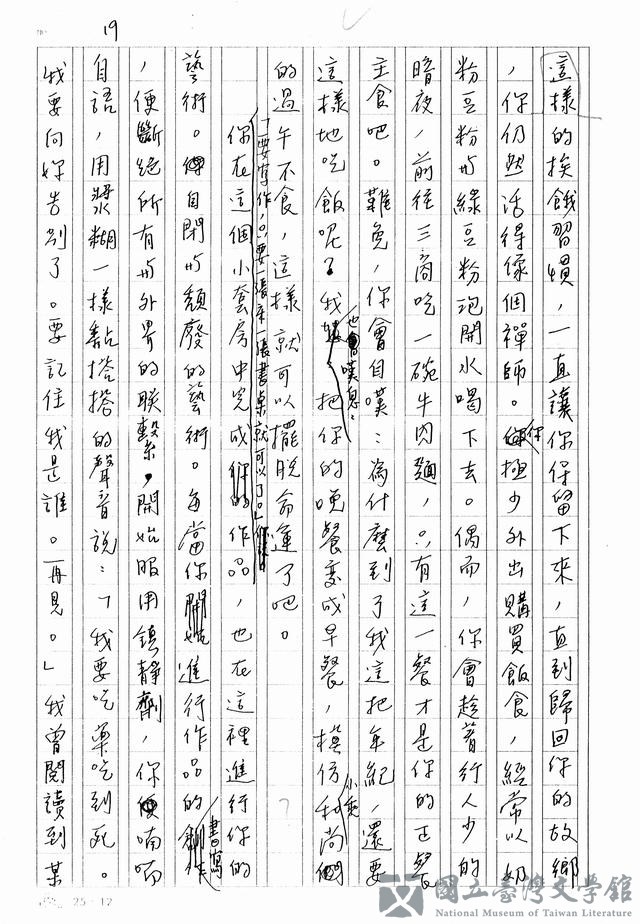 19
這樣的挨餓習慣，一直讓你保留下來，直到歸回你的故鄉
，你仍然活得像個禪師。你極少外出購買飯食，經常以奶
粉豆粉与綠豆粉泡開水喝下去。偶而，你會趁著行人少的
暗夜，前往三商吃一碗牛肉麵，只有這一餐才是你的正餐
主食吧。難免，你會自嘆：為什麼到了我這把年紀，還要
這樣地吃飯呢？我也會嘆息：把你的晚餐變成早餐，模仿小乘和尚們
的過午不食，這樣就可以擺脫命運了吧。
「要寫作，只要一張床一張書桌就可以了。」
你在這個小套房中完成你的作品，也在這裡進行你的
藝術。自閉与頹廢的藝術。每當你進行作品的書寫
，便斷絕所有与外界的聯繫，開始服用鎮靜劑，你便喃喃
自語，用漿糊一樣黏搭搭的聲音說：「我要吃藥吃到死。
我要向妳告別了。要記住我是誰。再見。」我曾閱讀到某
25·12
國立臺灣文學館
National Museum of Taiwan Literature